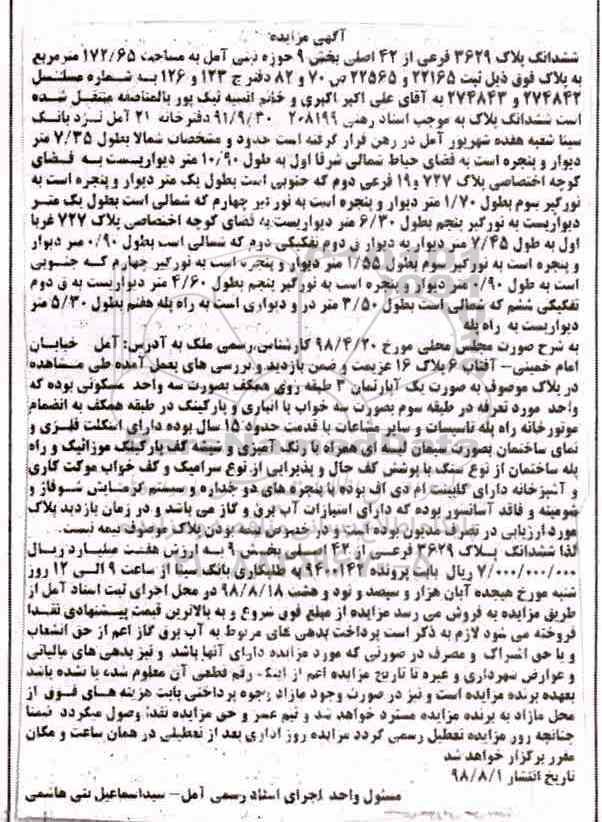 آگهی مزایده
ششدانگ پلاک ۳۶۲۹ فرعی از ۴۲ اصلی بخش ۹ حوزه ثبتی آمل به مساحت ۱۷۲/۶۵ مترمربع
به پلاک فوق ذیل ثبت ۲۲۱۶۵ و ۲۲۵۶۵ ص ۷۰ و ۸۲ دفتر ج ۱۲۳ و ۱۲۶ به شماره مسلسل
۲۷۴۸۴۲ و ۲۷۴۸۴۳ به آقای علی اکبر اکبری و خانم انسیه نیک پور بالمناصفه منتقل شده
است ششدانگ پلاک به موجب اسناد رهنی ۲۰۸۱۹۹ ۹۱/۹/۳۰ دفترخانه ۲۱ آمل نزد بانک
سینا شعبه هفده شهریور آمل در رهن قرار گرفته است حدود و مشخصات شمالا بطول ۷/۳۵ متر
دیوار و پنجره است به فضای حیاط شمالی شرقا اول به طول ۱۰/۹۰ متر دیواریست به فضای
کوچه اختصاصی پلاک ۷۲۷ و ۱۹ فرعی دوم که جنوبی است بطول یک متر دیوار و پنجره است به
نورگیر سوم بطول ۱/۷۰ متر دیوار و پنجره است به نورگیر چهارم که شمالی است بطول یک متر
دیواریست به نورگیر پنجم بطول ۶/۳۰ متر دیواریست به فضای کوچه اختصاصی پلاک ۷۲۷ غربا
اول به طول ۷/۴۵ متر دیوار به دیوار ق دوم تفکیکی دوم که شمالی است بطول ۰/۹۰ متر دیوار
و پنجره است به نورگیر سوم بطول ۱/۵۵ متر دیوار و پنجره است به نورگیر چهارم که جنوبی
است به طول ۰/۹۰ متر دیوار و پنجره است به نورگیر پنجم بطول ۴/۶۰ متر دیواریست به ق دوم
تفکیکی ششم که شمالی است بطول ۳/۵۰ متر در و دیواری است به راه پله هفتم بطول ۵/۳۰ متر
دیواریست به راه پله
به شرح صورت مجلس محلی مورخ ۹۸/۴/۲۰ کارشناس رسمی ملک به آدرس: آمل خیابان
امام خمینی- آفتاب ۶ پلاک ۱۶ عزیمت و ضمن بازدید و بررسی های بعمل آمده طی مشاهده
در پلاک موصوف به صورت یک آپارتمان ۳ طبقه روی همکف بصورت سه واحد مسکونی بوده که
واحد مورد تعرفه در طبقه سوم بصورت سه خواب با انباری و پارکینگ در طبقه همکف به انضمام
موتورخانه راه پله تاسیسات و سایر مشاعات با قدمت حدود ۱۵ سال بوده دارای اسکلت فلزی و
نمای ساختمان بصورت سیمان لیسه ای همراه با رنگ آمیزی و شیشه کف پارکینگ موزائیک و راه
پله ساختمان از نوع سنگ با پوشش کف حال و پذیرایی از نوع سرامیک و کف خواب موکت کاری
و آشپزخانه دارای کابینت ام دی اف بوده با پنجره های دو جداره و سیستم گرمایش شوفاژ و
شومینه و فاقد آسانسور بوده که دارای امتیازات آب برق و گاز می باشد و در زمان بازدید پلاک
مورد ارزیابی در تصرف مدیون بوده است و در خصوص بیمه بودن پلاک موصوف بیمه نیست.
لذا ششدانگ پلاک ۳۶۲۹ فرعی از ۴۲ اصلی بخش ۹ به ارزش هفت میلیارد ریال
۷/۰۰۰/۰۰۰/۰۰۰ ریال بابت پرونده ۹۴۰۰۱۴۲ به طلبکاری بانک سینا از ساعت ۹ الی ۱۲ روز
شنبه مورخ هیجده آبان هزار و سیصد و نود و هشت ۹۸/۸/۱۸ در محل اجرای ثبت اسناد آمل از
طریق مزایده به فروش می رسد مزایده از مبلغ فوق شروع و به بالاترین قیمت پیشنهادی نقدا
فروخته می شود لازم به ذکر است پرداخت بدهی های مربوط به آب برق گاز اعم از حق انشعاب
و یا حق اشتراک و مصرف در صورتی که مورد مزایده دارای آنها باشد و نیز بدهی های مالیاتی
و عوارض شهرداری و غیره تا تاریخ مزایده اعم از اینکه رقم قطعی آن معلوم شده یا نشده باشد
بعهده برنده مزایده است و نیز در صورت وجود مازاد وجوه پرداختی بابت هزینه های فوق از
محل مازاد به برنده مزایده مسترد خواهد شد و نیم عشر و حق مزایده نقدا وصول میگردد ضمنا
چنانچه روز مزایده تعطیل رسمی گردد مزایده روز اداری بعد از تعطیلی در همان ساعت و مکان
مقرر برگزار خواهد شد
تاریخ انتشار ۹۸/۸/۱
مسئول واحد اجرای اسناد رسمی آمل- سیداسماعیل بنی هاشمی